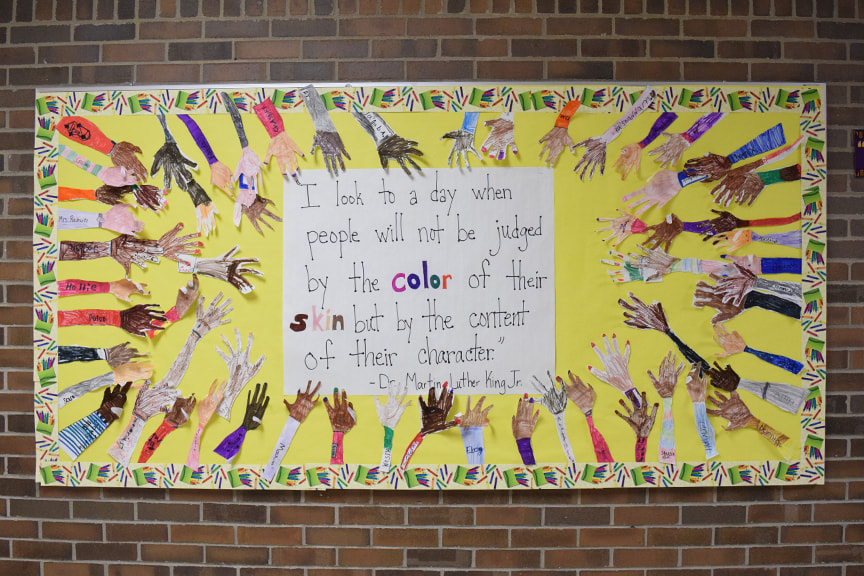 "I look to a day when
people will not be judged
by the color of their
skin but by the content
of their character."
- Dr. Martin Luther King Jr.
Hollie